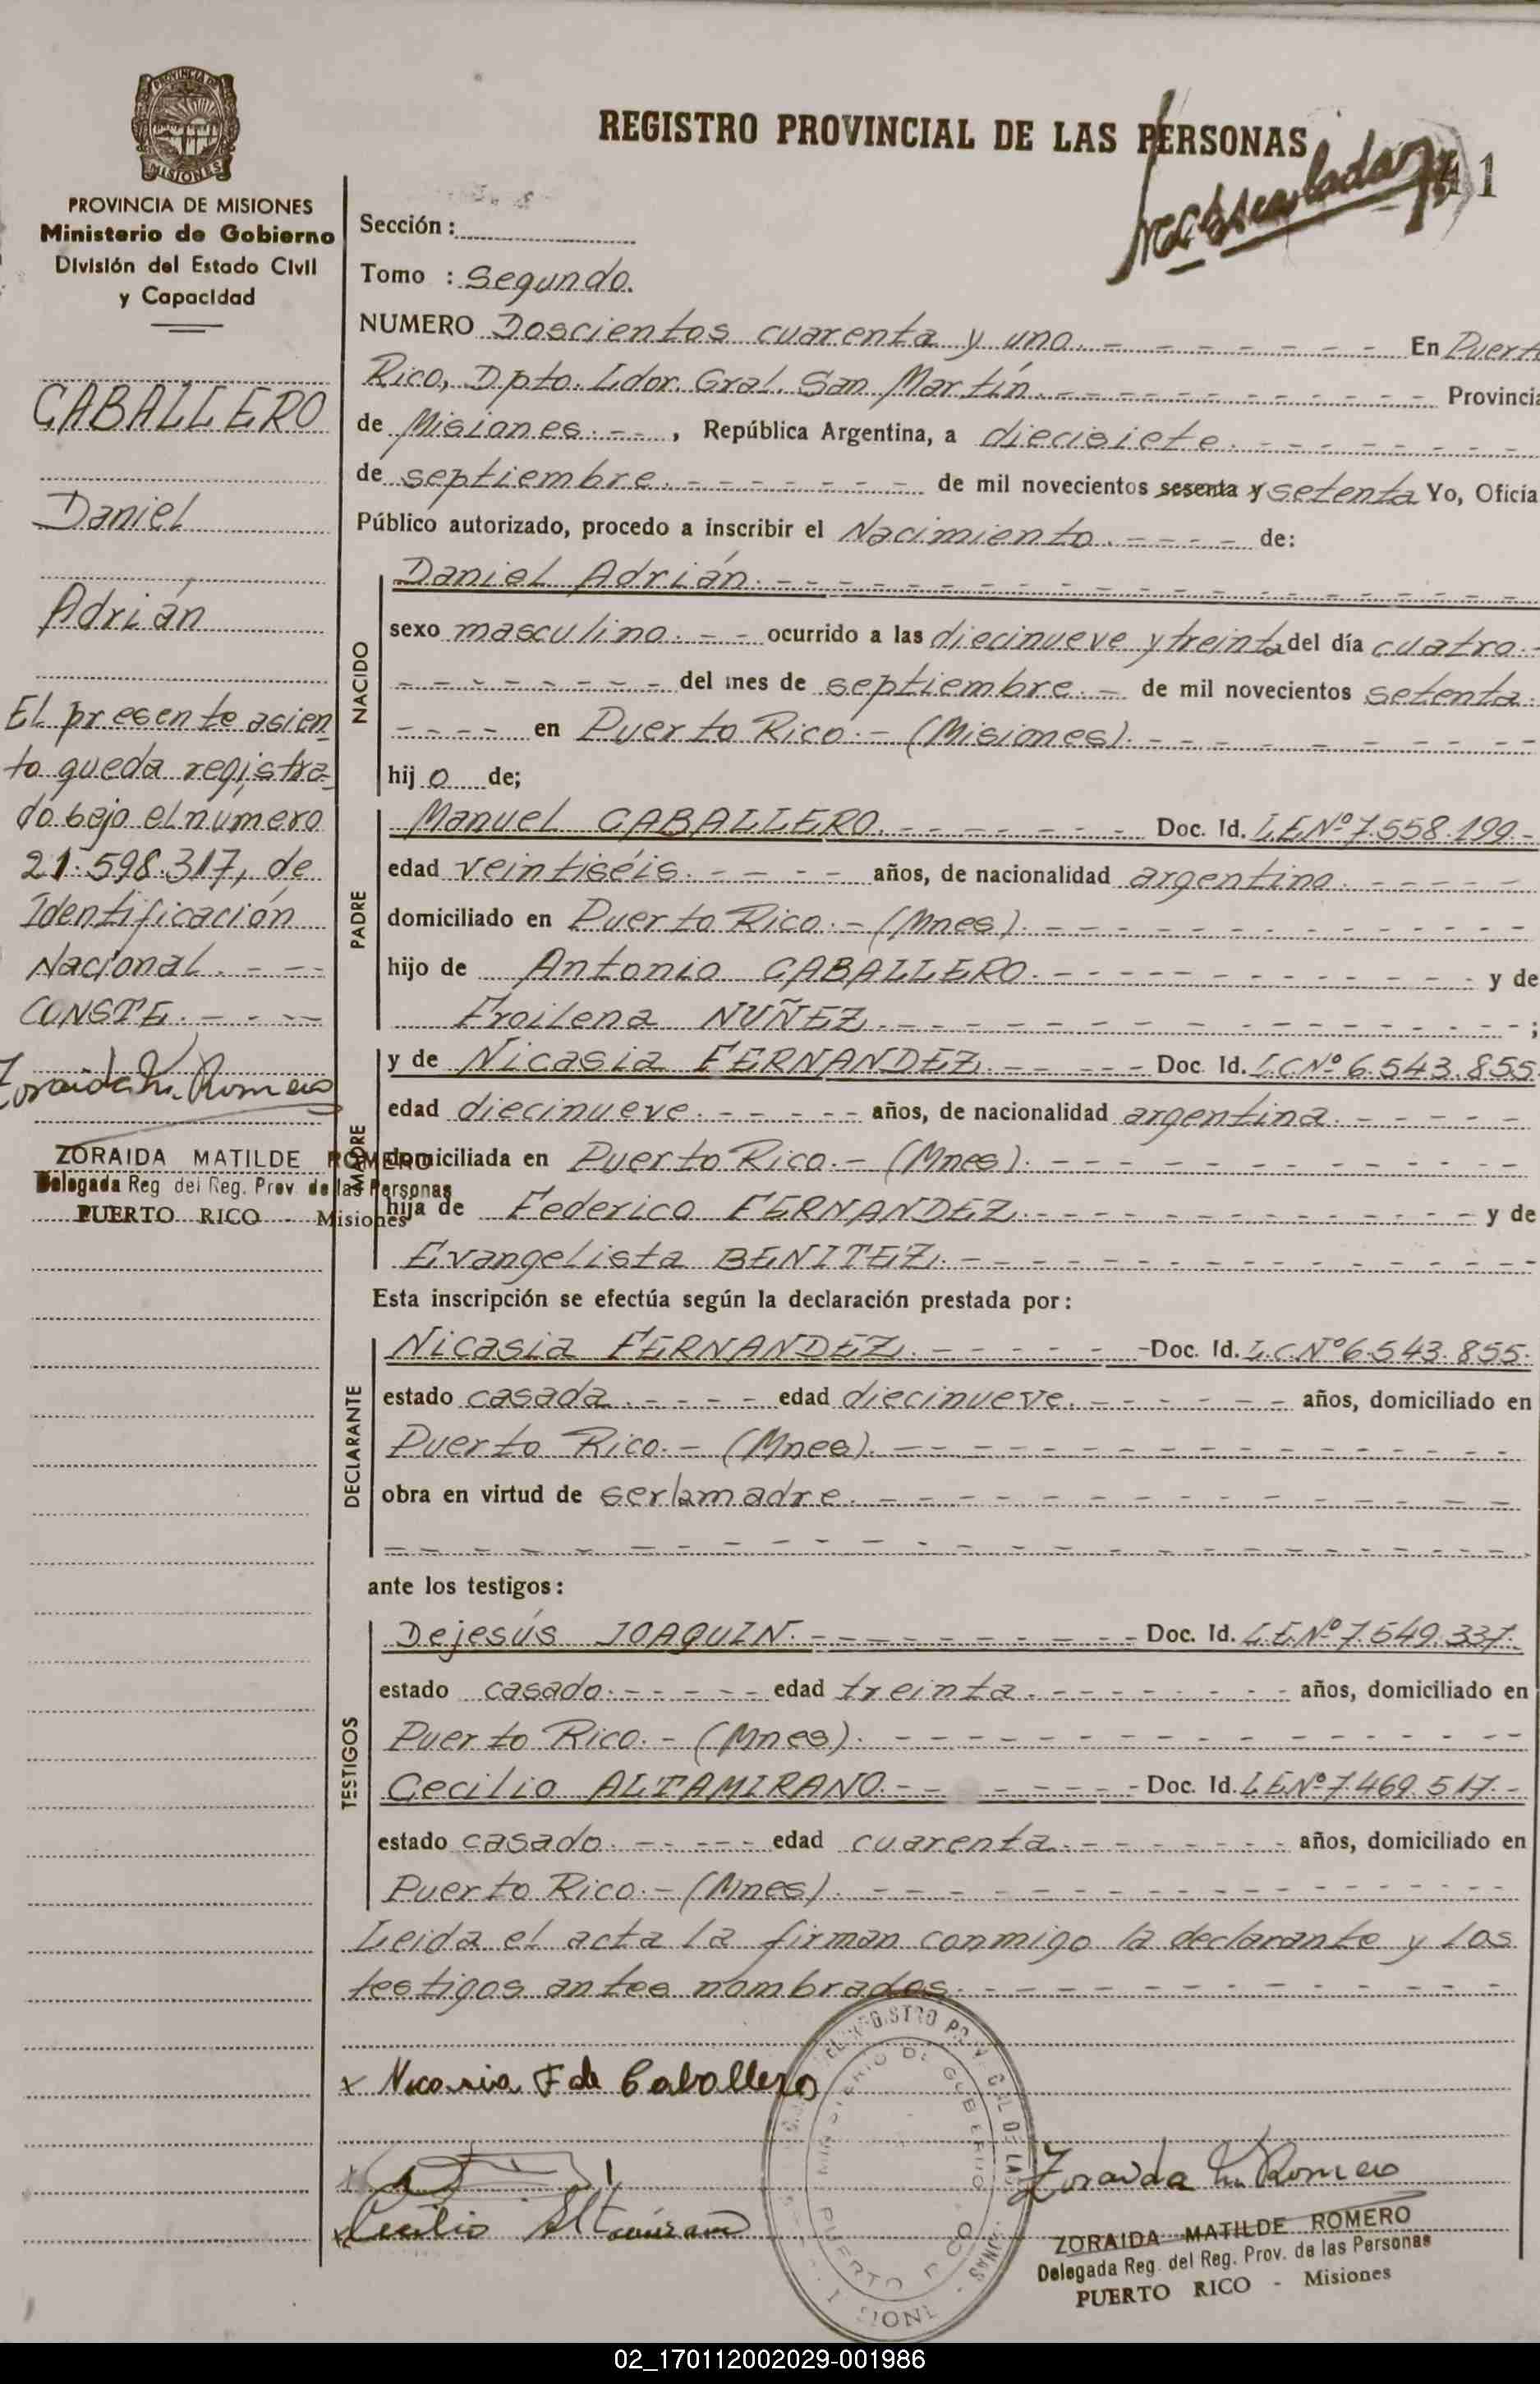 PROVINCIA DE MISIONES
Ministerio de Gobierno
División del Estado Civil
y Capacidad
CABALLERO
Daniel
Adrián
El presente asien-
to queda registra-
do bajo el número
21.598.317, de
Identificación
Nacional. - - -
CONSTE. - - -
Zoraida M. Romero
ZORAIDA MATILDE ROMERO
Delegada Reg del Reg. Prov de las Personas
PUERTO RICO - Misiones
REGISTRO PROVINCIAL DE LAS PERSONAS
41
Sección:
Tomo : Segundo.
NUMERO Doscientos cuarenta y uno. - - - - - - - En Puerto
Rico, Dpto. Ldor. Gral. San Martín. - - - - - - - - - Provincia
de Misiones. - - , República Argentina, a diecisiete. - - - - - - -
de septiembre. - - - - - - - de mil novecientos sesenta y setenta Yo, Oficia
Público autorizado, procedo a inscribir el Nacimiento. - - - - de:
NACIDO
Daniel Adrián. - - - - - - - - - - - - - - - -
sexo masculino. - - ocurrido a las diecinueve y treinta del día cuatro. -
- - - - - - - - del mes de septiembre. - de mil novecientos setenta.
- - - - en Puerto Rico. - (Misiones). - - - - - - - - -
hij o de;
PADRE
Manuel CABALLERO. - - - - - - Doc. Id. L.E.Nº 7.558.199.-
edad veintiséis. - - - - años, de nacionalidad argentino. - - - - -
domiciliado en Puerto Rico. - (Mnes). - - - - - - - - - - -
hijo de Antonio CABALLERO. - - - - - - - - - - y de
Froilena NUÑEZ. - - - - - - - - - - - - - - ;
MADRE
y de Nicasia FERNANDEZ. - - - - - Doc. Id. L.C.Nº 6.543.855.
edad diecinueve. - - - - - años, de nacionalidad argentina. - - - - -
domiciliada en Puerto Rico. - (Mnes). - - - - - - - - - - -
hija de Federico FERNANDEZ. - - - - - - - - - - y de
Evangelista BENITEZ. - - - - - - - - - - - - -
Esta inscripción se efectúa según la declaración prestada por:
DECLARANTE
Nicasia FERNANDEZ. - - - - - -Doc. Id. L.C.Nº 6.543.855.
estado casada. - - - - edad diecinueve. - - - - - - años, domiciliado en
Puerto Rico. - (Mnes). - - - - - - - - - - - - - -
obra en virtud de ser la madre. - - - - - - - - - - - - - -
- - - - - - - - - - - - - - - - - - - - - -
ante los testigos:
TESTIGOS
Dejesús JOAQUIN. - - - - - - - - Doc. Id. L.E.Nº 7.549.337.
estado casado. - - - - - edad treinta. - - - - - - - - años, domiciliado en
Puerto Rico. - (Mnes). - - - - - - - - - - - - - -
Cecilio ALTAMIRANO. - - - - - - - Doc. Id. L.E.Nº 7.469.517.-
estado casado. - - - - - edad cuarenta. - - - - - - - años, domiciliado en
Puerto Rico. - (Mnes). - - - - - - - - - - - - - -
Leida el acta la firman conmigo la declarante y los
testigos antes nombrados. - - - - - - - - - - - -
x Nicasia F de Caballero
x Cecilio Altamirano
Zoraida M. Romero
ZORAIDA MATILDE ROMERO
Delegada Reg. del Reg. Prov. de las Personas
PUERTO RICO - Misiones
02_170112002029-001986